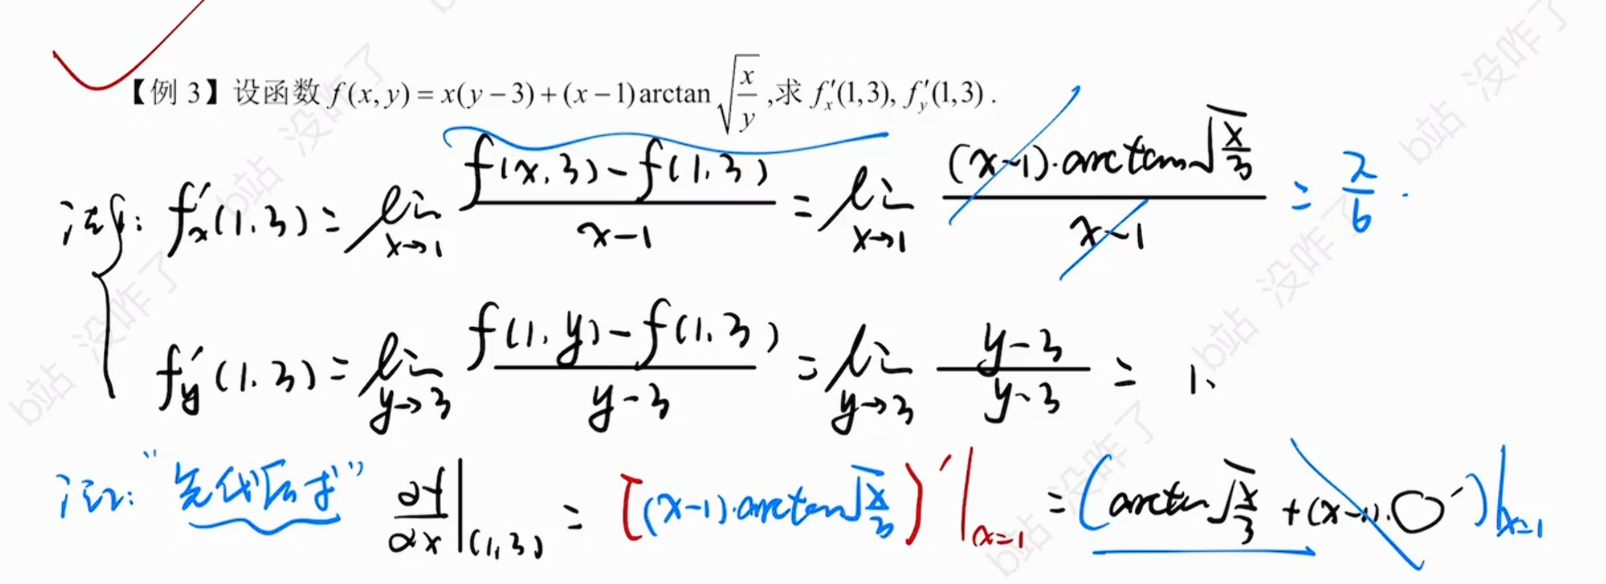 【例 3】设函数 f(x,y)=x(y-3)+(x-1)arctan√(x/y),求 f′x(1,3), f′y(1,3).
法1: f′x(1,3)=lim x→1 (f(x,3)-f(1,3))/(x-1) = lim x→1 ((x-1)·arctan√(x/3))/(x-1) = π/6.
f′y(1,3)=lim y→3 (f(1,y)-f(1,3))/(y-3) = lim y→3 (y-3)/(y-3) = 1.
法2:“先代后求” ∂f/∂x|(1,3) = [(x-1)·arctan√(x/3)]′|x=1 = (arctan√(x/3)+(x-1)·○′)|x=1
b站 没咋了
b站 没咋了
b站 没咋了
b站 没咋了
b站 没咋了
b站 没咋了